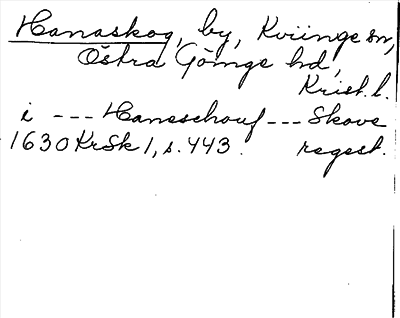 Hanaskog, by, Kviinge sn,
Östra Göinge hd,
Krist. l.
i --- Hansschouf --- Skove
1630 KrSk 1, s. 443. regest.